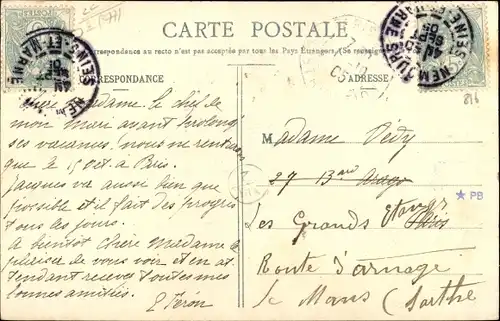 CARTE POSTALE
Correspondance au recto n'est pas acceptée par tous les Pays Étrangers. (Se renseigner
CORRESPONDANCE
ADRESSE
NEMOURS
SEINE-ET-MARNE
SEINE-ET-MARNE
Chère Madame. Le chef de
mon mari ayant prolongé
ses vacances, nous ne rentrerons
que le 15 oct. à Paris.
Jacques va aussi bien que
possible et il fait des progrès
tous les jours.
A bientôt chère Madame le
plaisir de vous voir et en at-
tendant recevez toutes mes
bonnes amitiés.
Madame
27 13ard Arago
Paris
Les Grands Etangs
Route d'arnage
Le Mans (Sarthe)
★ PB